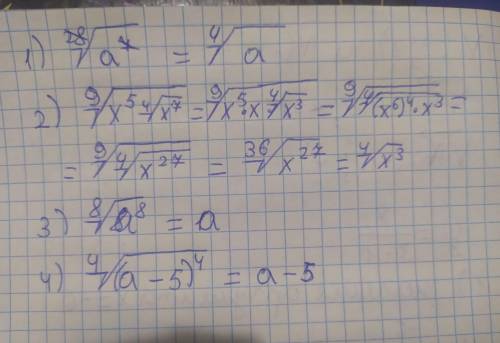 1) \sqrt[28]{a^7} = \sqrt[4]{a}
2) \sqrt[9]{x^5 \sqrt[4]{x^7}} = \sqrt[9]{x^5 \cdot x \sqrt[4]{x^3}} = \sqrt[9]{\sqrt[4]{(x^6)^4 \cdot x^3}} =
= \sqrt[9]{\sqrt[4]{x^{27}}} = \sqrt[36]{x^{27}} = \sqrt[4]{x^3}
3) \sqrt[8]{a^8} = a
4) \sqrt[4]{(a-5)^4} = a-5